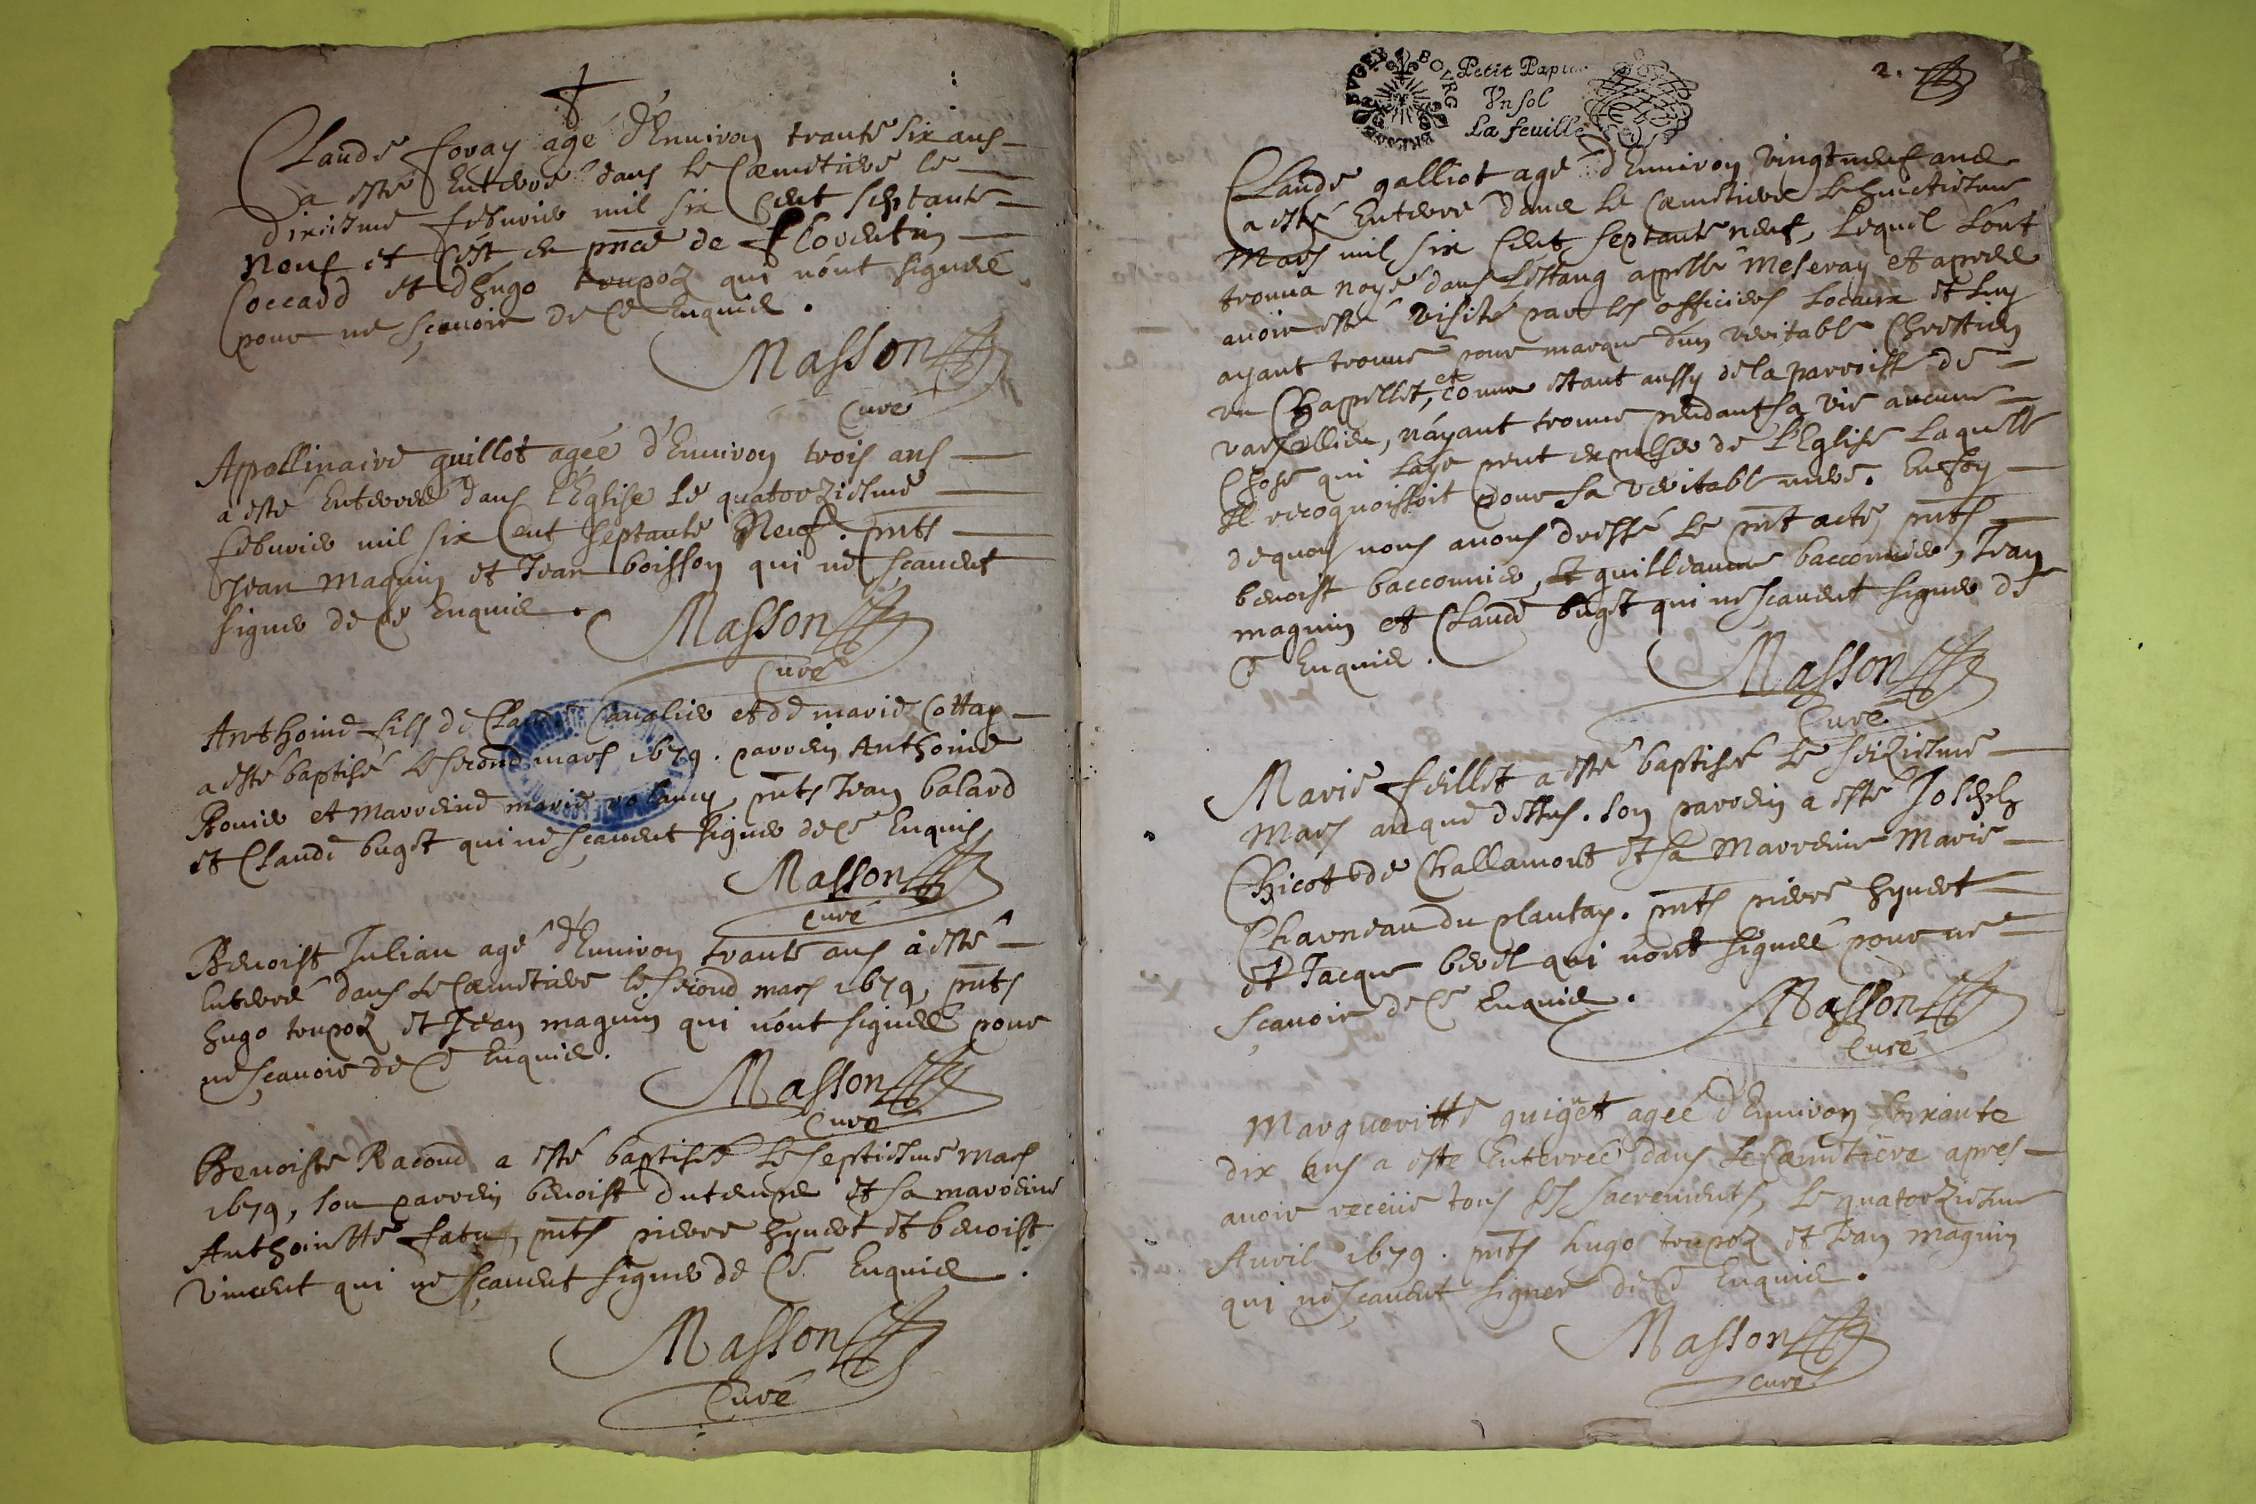 Claude foray agé d'Enuiron trante six ans
a esté Enterré dans le Cæmetiere le
dixiesme febuvier mil six Cent septante
Neuf et C'est en pnce de florentin
Coccard et d'hugo toupoz qui n'ont signéé
pour ne sçauoir de Ce Enquis.
Masson
Curé
Appollinaire guillot agée d'Enuiron trois ans
a esté Enterréé dans l'Eglise le quatorziesme
febuvier mil six Cent septante Neuf. pnts
Jean maguin et Jean boisson qui ne sçauent
signer de Ce Enquis.
Masson
Curé
Anthoine fils de Claude et de marie Cottay
a esté baptisé le second mars 1679. parrein Anthoine
Bonier et Marreine marie pnts Jean balard
et Claude buget qui ne sçauent signer de Ce Enquis
Masson
Curé
Benoist Julian agé d'Enuiron trante ans a esté
Enterré dans le Cæmetiere le second mars 1679, pnts
hugo toupoz et Jean maguin qui n'ont signéé pour
ne sçauoir de Ce Enquis.
Masson
Curé
Benoiste Racond a esté baptiséé le septiesme mars
1679, son parrein benoist dutempe et sa marreine
Anthoinette pnts pierre hyuert et benoist
vincent qui ne sçauent signer de Ce Enquis.
Masson
Curé
BUGEY BOURG
Petit Papier
Vn sol
La feuille
2.
Claude galliot agé d'Enuiron vingt neuf ans
a esté Enterré dans le Cæmetiere le huictiesme
Mars mil six Cent septante neuf, lequel l'ont
trouua noyé dans l'estang apellé Meseray et apres
auoir esté visité par les officiers locaux et luy
ayant trouué pour marque d'un veritable Chrestien
un Chappellet, et comme estant aussy de la parroisse de
varfallieu, n'ayant trouué pendant sa vie aucune
Chose qui l'aye peut expulser de l'Eglise laquelle
Il recoqnoissoit pour sa veritable mere. En foy
de quoy nous auons dressé le pnt acte, pnts
benoist bacconnier, et guilleaume bacconnier, Jean
maguin et Claude buget qui ne sçauent signer de
Ce Enquis.
Masson
Curé
Marie feillet a esté baptiséé le seiziesme
Mars an que dessus. son parrein a esté Joseph
Chicot de Challamont et sa Marreine Marie
Charneau du plantay. pnts pierre hyuert
et Jacque berel qui n'ont signéé pour ne
sçauoir de Ce Enquis.
Masson
Curé
Margueritte guiget agéé d'Enuiron soixante
dix ans a esté Enterréé dans le Cæmetiere apres
auoir receüe tous les sacrements, le quatorziesme
Auril 1679. pnts hugo toupoz et Jean maguin
qui ne sçauent signer de Ce Enquis.
Masson
Curé